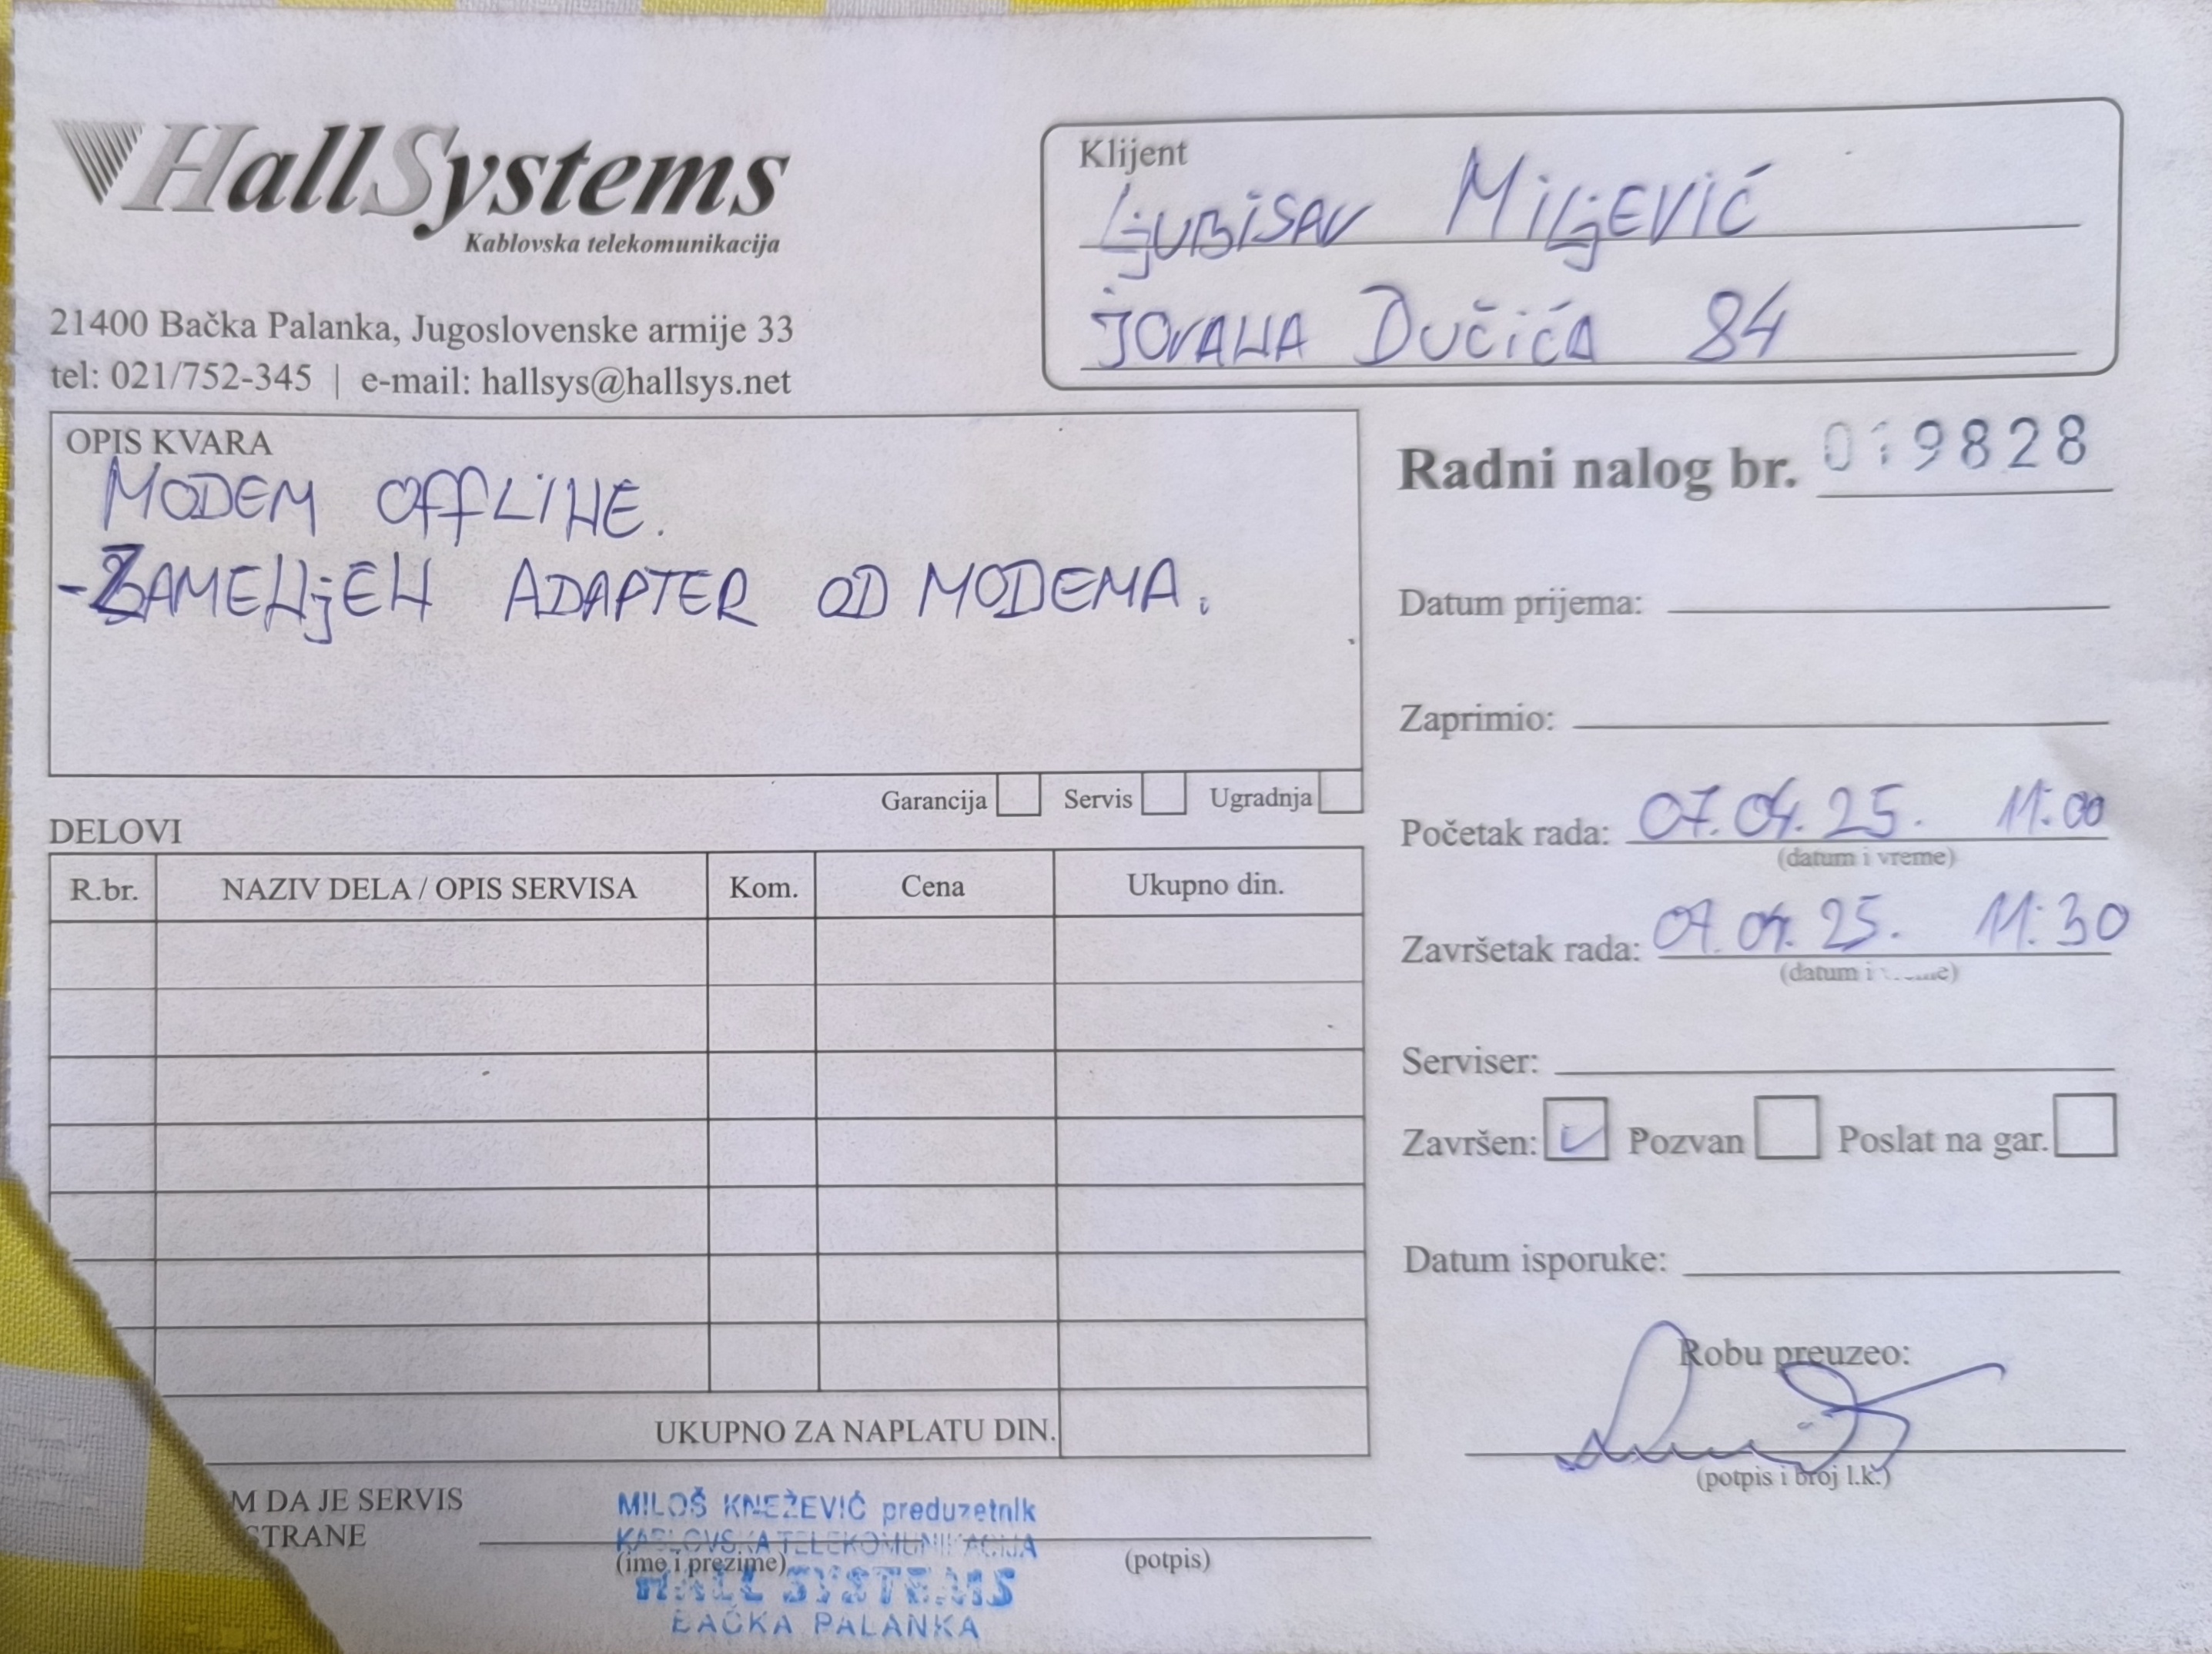 HallSystems
Kablovska telekomunikacija
21400 Bačka Palanka, Jugoslovenske armije 33
tel: 021/752-345 | e-mail: hallsys@hallsys.net
Klijent
LjUBiSAV MiLjEVIĆ
JOVANA DUČIĆA 84
OPIS KVARA
MODEM OFFLINE.
-ZAMENjEN ADAPTER OD MODEMA.
Garancija Servis Ugradnja
Radni nalog br. 019828
Datum prijema:
Zaprimio:
Početak rada: 07.04.25. 11:00
(datum i vreme)
Završetak rada: 07.04.25. 11:30
(datum i
Serviser:
Završen: Pozvan Poslat na gar.
Datum isporuke:
Robu preuzeo:
(potpis i broj l.k.)
DELOVI
R.br. NAZIV DELA / OPIS SERVISA Kom. Cena Ukupno din.
UKUPNO ZA NAPLATU DIN.
M DA JE SERVIS
STRANE
(ime i prezime) (potpis)
MILOŠ KNEŽEVIĆ preduzetnik
KABLOVSKA TELEKOMUNIKACIJA
HALL SYSTEMS
BAČKA PALANKA